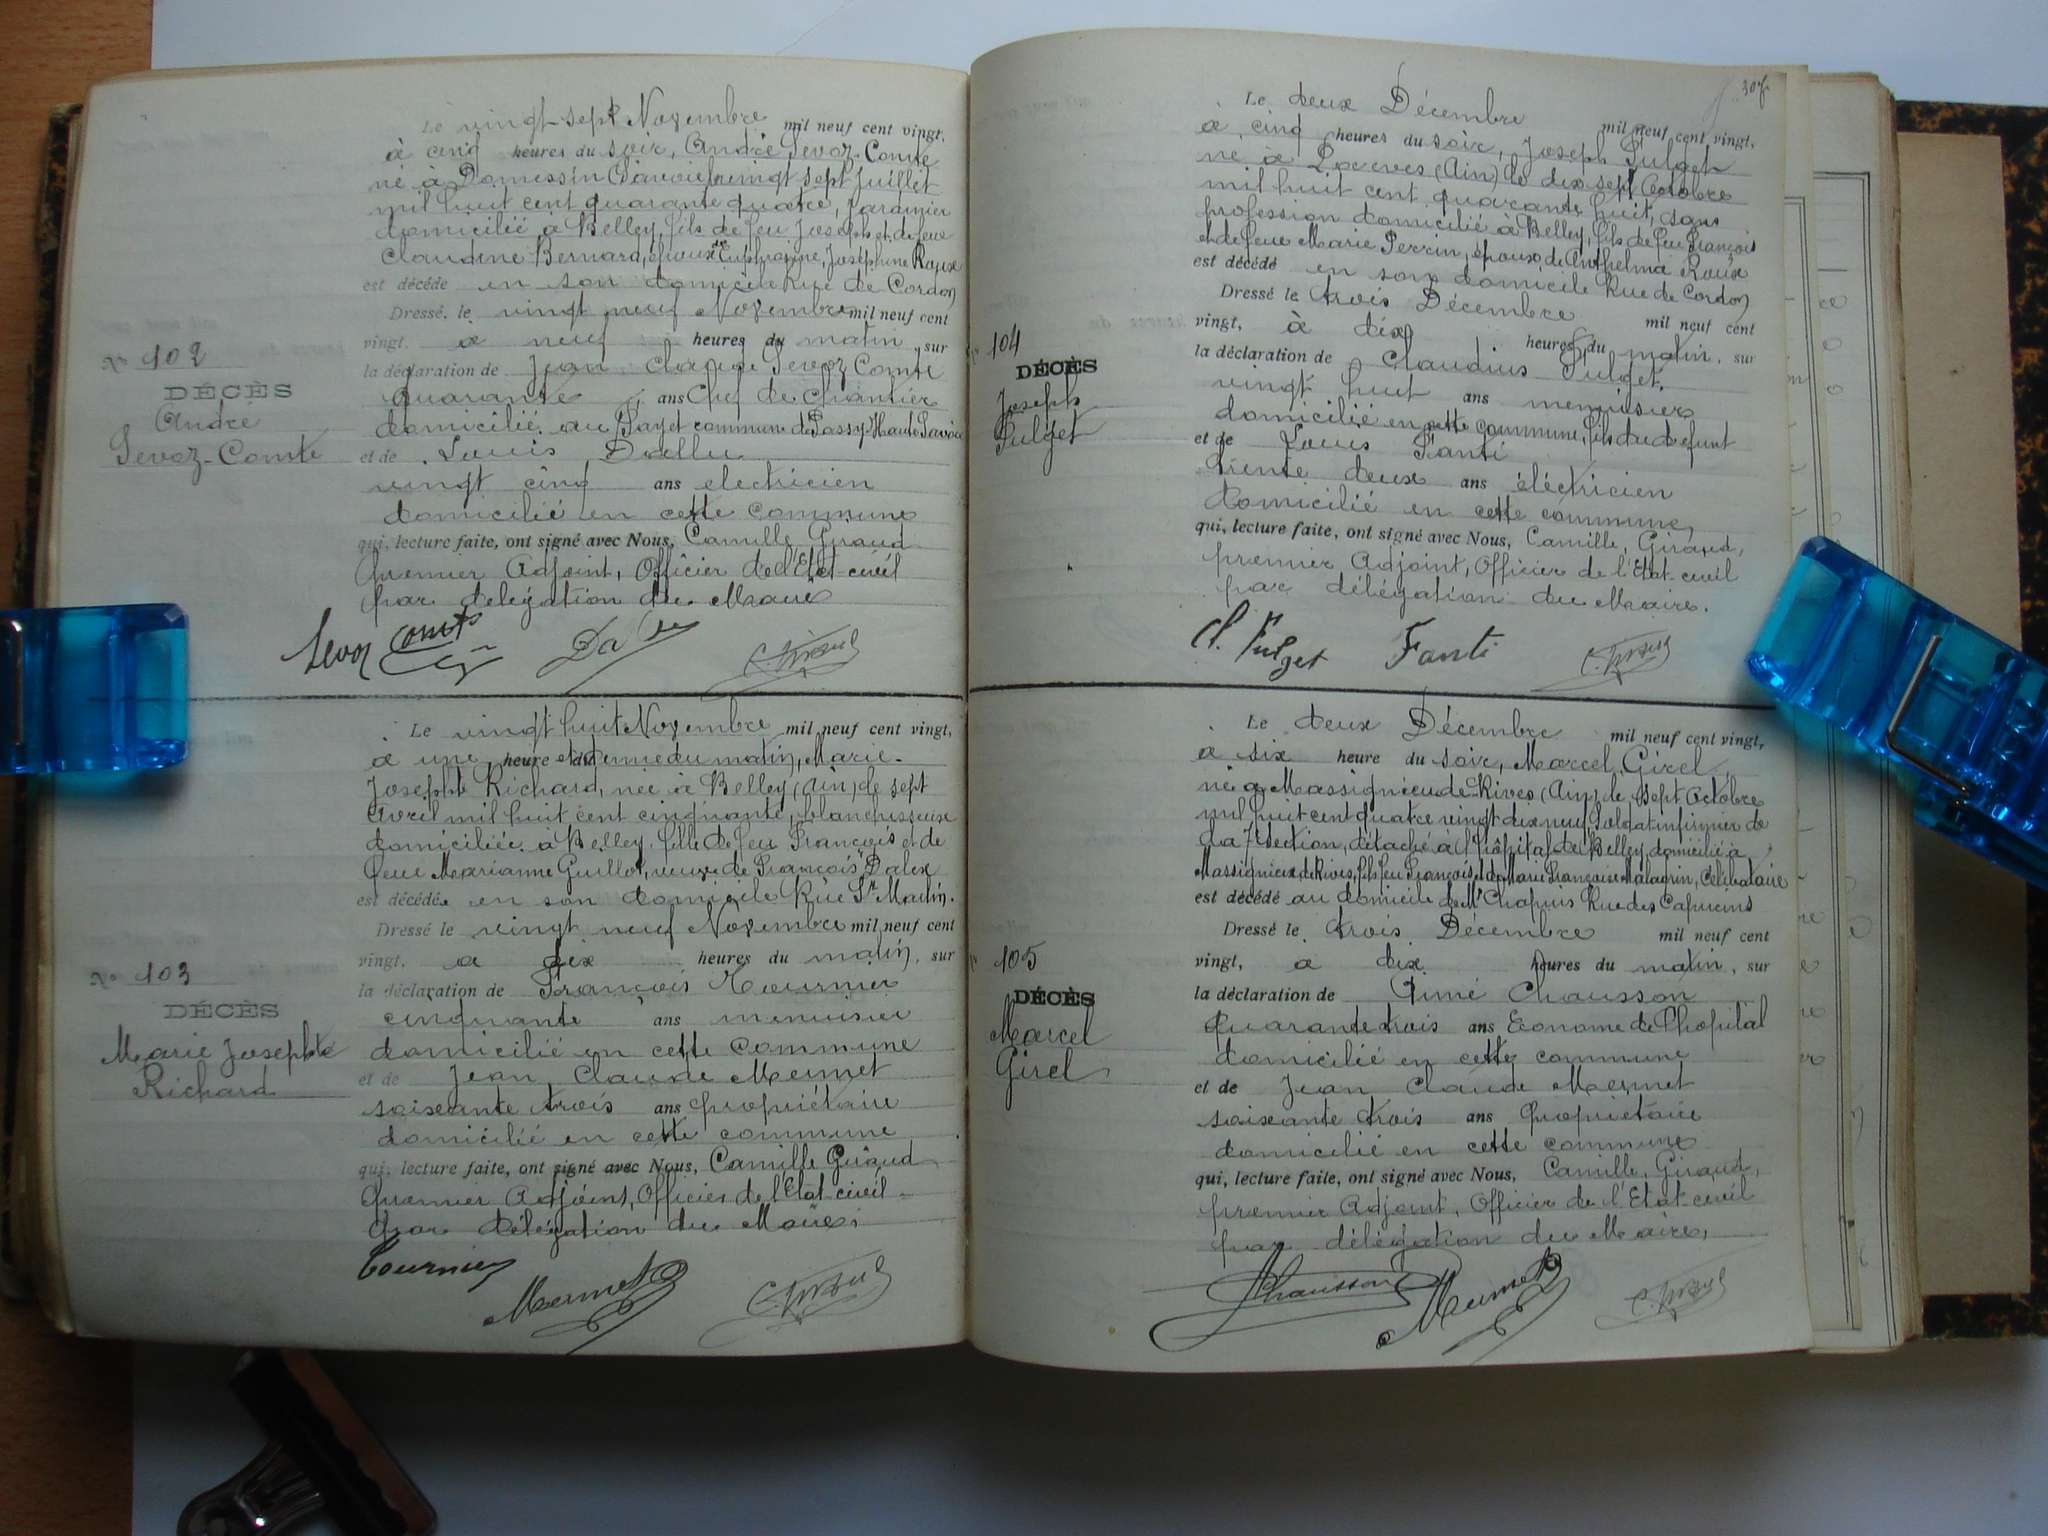 Le vingt sept Novembre mil neuf cent vingt,
à cinq heures du soir, André Sevoz-Comte
né à Domessin (Savoie) le vingt sept Juillet
mil huit cent quarante quatre, Jardinier
domicilié à Belley, fils de feu Joseph et de feue
Claudine Bernard, époux de Euphrasine, Joséphine Roux
est décédé en son domicile Rue de Cordon
Dressé, le vingt neuf Novembre mil neuf cent
vingt. à neuf heures du matin, sur
la déclaration de Jean Claude Sevoz Comte
quarante ans Chef de Chantier
domicilié au Fayet commune de Passy Haute Savoie
et de Louis
vingt cinq ans electricien
domicilié en cette commune
qui, lecture faite, ont signé avec Nous, Camille Giraud
premier Adjoint, Officier de l'Etat-civil
par délégation du Maire
N° 102
DÉCÈS
André
Sevoz-Comte
Sevoz Comte C. Giraud
Le vingt huit Novembre mil neuf cent vingt,
à une heure et demie du matin, Marie-
Josephte Richard, née à Belley (Ain) le sept
Avril mil huit cent cinquante, blanchisseuse
domiciliée à Belley, fille de feu François et de
feue Marianne Guillot, veuve de François Dalex
est décédée en son domicile Rue St Martin.
Dressé le vingt neuf Novembre mil neuf cent
vingt. à dix heures du matin, sur
la déclaration de François Tournier
cinquante ans menuisier
domicilié en cette commune
et de Jean, Claude Mermet
soixante trois ans propriétaire
domicilié en cette commune
qui, lecture faite, ont signé avec Nous, Camille Giraud
premier Adjoint, Officier de l'Etat-civil
par délégation du Maire
N° 103
DÉCÈS
Marie Josephte
Richard
Tournier Mermet C. Giraud
307
Le deux Décembre mil neuf cent vingt,
à cinq heures du soir, Joseph Pulget
né à (Ain) le dix sept Octobre
mil huit cent quarante huit, sans
profession domicilié à Belley, fils de feu François
et de feue Marie Perrin, époux de Anthelma Roux
est décédé en son domicile Rue de Cordon
Dressé le trois Décembre mil neuf cent
vingt, à dix heures du matin, sur
la déclaration de Claudius Pulget,
vingt huit ans menuisier
domicilié en cette commune, fils du defunt
et de Louis Fanti
trente deux ans éléctricien
domicilié en cette commune,
qui, lecture faite, ont signé avec Nous, Camille, Giraud,
premier Adjoint, Officier de l'Etat-civil
par délégation du Maire.
N° 104
DÉCÈS
Joseph
Pulget
Cl. Pulget Fanti C. Giraud
Le deux Décembre mil neuf cent vingt,
à six heure du soir, Marcel Girel
né à Massignieu de Rives (Ain) le sept Octobre
mil huit cent quatre vingt dix neuf, Soldat infirmier de
la 7e Section, détaché à l'hôpital de Belley, domicilié à
Massignieu de Rives, fils feu François et de Marie Françoise Malagrin, Célibataire
est décédé au domicile de Mr Chapuis Rue des Capucins
Dressé le trois Décembre mil neuf cent
vingt, à dix heures du matin, sur
la déclaration de Aimé Chausson
quarante trois ans Econome de l'hopital
domicilié en cette commune
et de Jean Claude Mermet
soixante trois ans propriétaire
domicilié en cette commune
qui, lecture faite, ont signé avec Nous, Camille, Giraud,
premier Adjoint, Officier de l'Etat-civil
par délégation du Maire,
N° 105
DÉCÈS
Marcel
Girel
Chausson Mermet C. Giraud